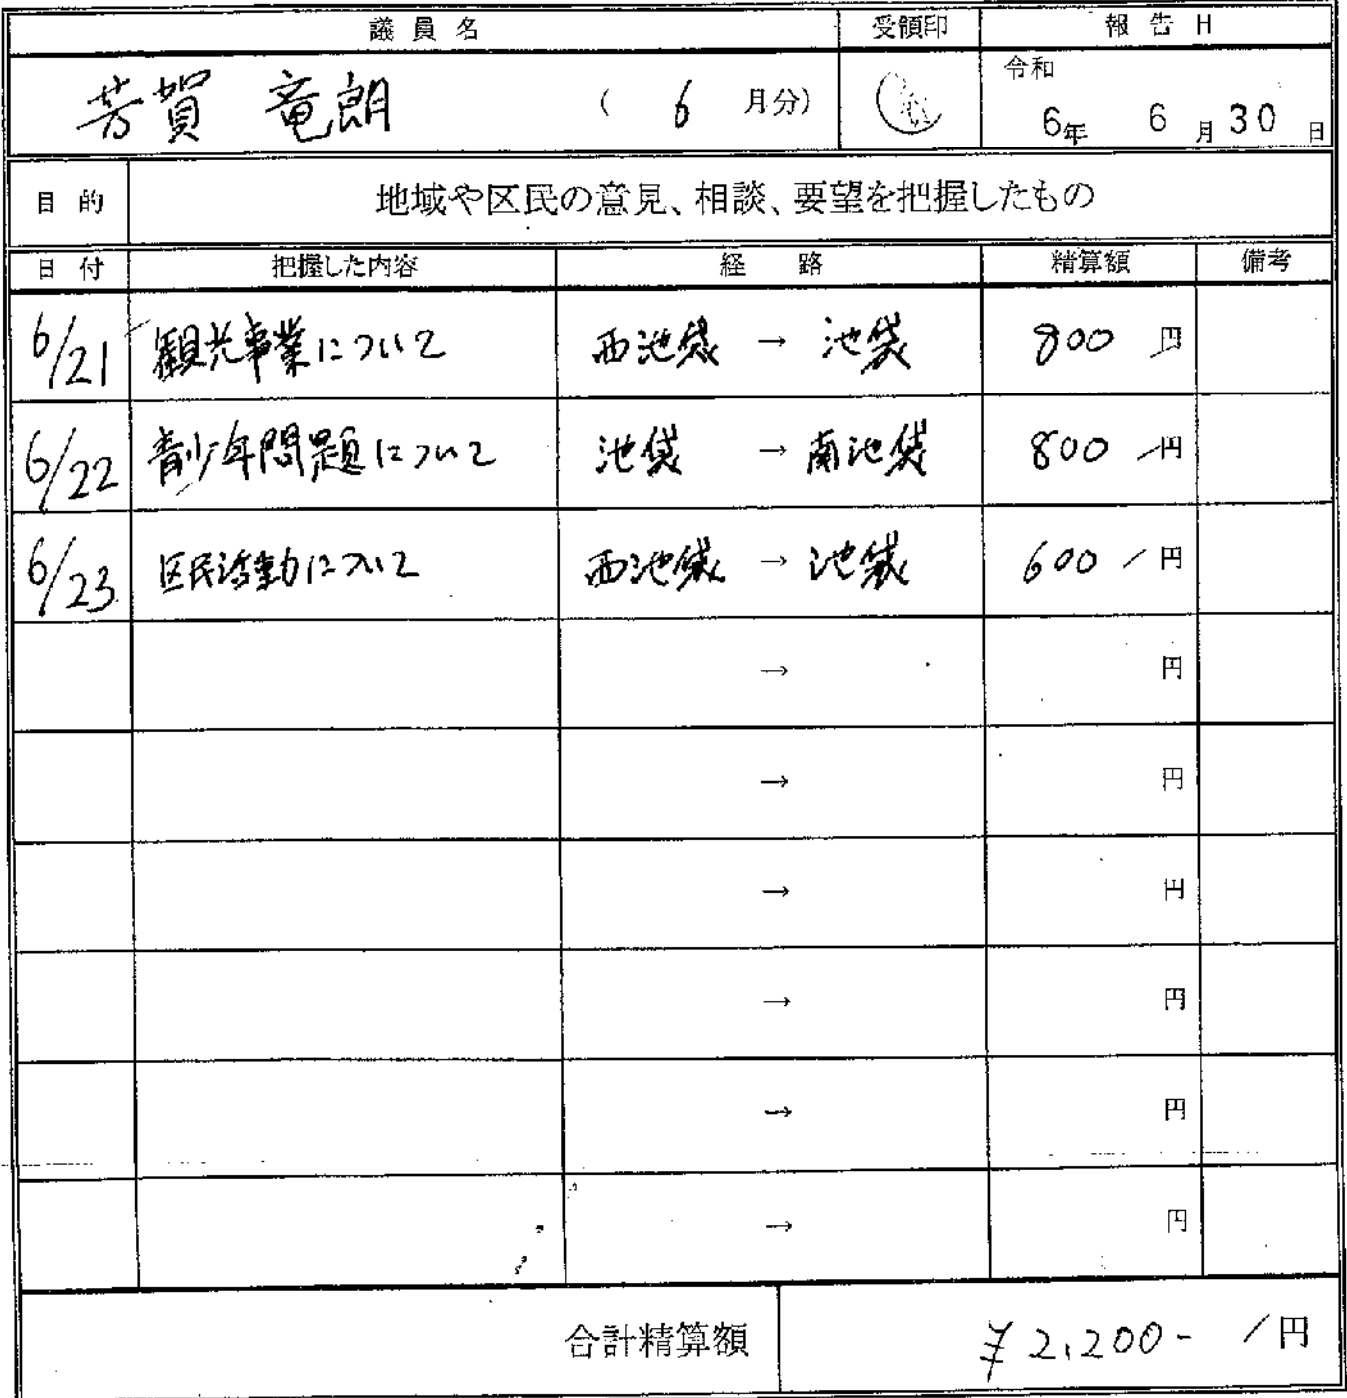 議員名 受領印 報告日
芳賀 竜朗 ( 6 月分) 令和
6年 6月30日
目的 地域や区民の意見、相談、要望を把握したもの
日付 把握した内容 経路 精算額 備考
6/21 観光事業について 西池袋 → 池袋 800 円
6/22 青少年問題について 池袋 → 南池袋 800 円
6/23 区民活動について 西池袋 → 池袋 600 円
→ 円
→ 円
→ 円
→ 円
→ 円
→ 円
合計精算額 ¥2,200- 円